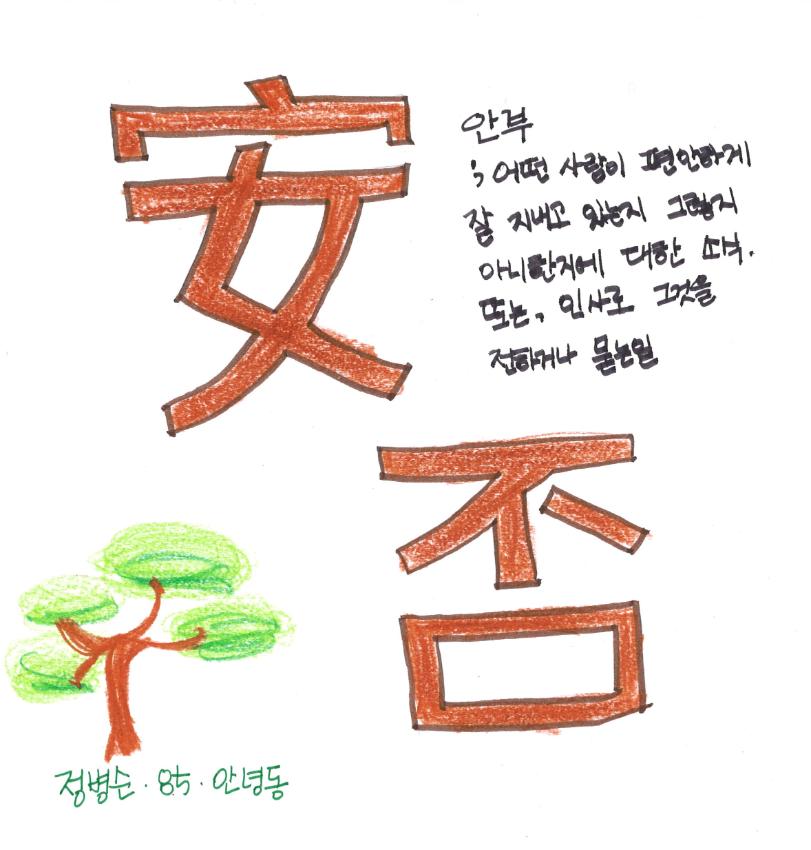 安
否
안부
; 어떤 사람이 편안하게
잘 지내고 있는지 그렇지
아니한지에 대한 소식.
또는, 인사로 그것을
전하거나 묻는일
정병순·85·안녕동